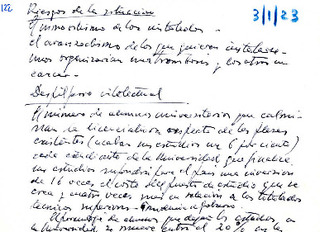 122
3/1/23
Riesgos de la situación
El inmovilismo de los instalados -
El avanzadismo de los que quieren instalarse -
unos organizarían una trombosis y los otros un
cáncer -
Despilfarro intelectual
El número de alumnos universitarios que culmi-
nan la licenciatura respecto de las plazas
existentes (acaban sus estudios un 6 por ciento)
cada
de la Universidad que
sus estudios supondría para el país una inversión
de 16 veces el costo del puesto de estudio que se
crea y cuatro veces más en relación a los titulados
técnicos superiores -
El porcentaje de alumnos que dejan los estudios en
la Universidad se mueve entre el 20 % en la